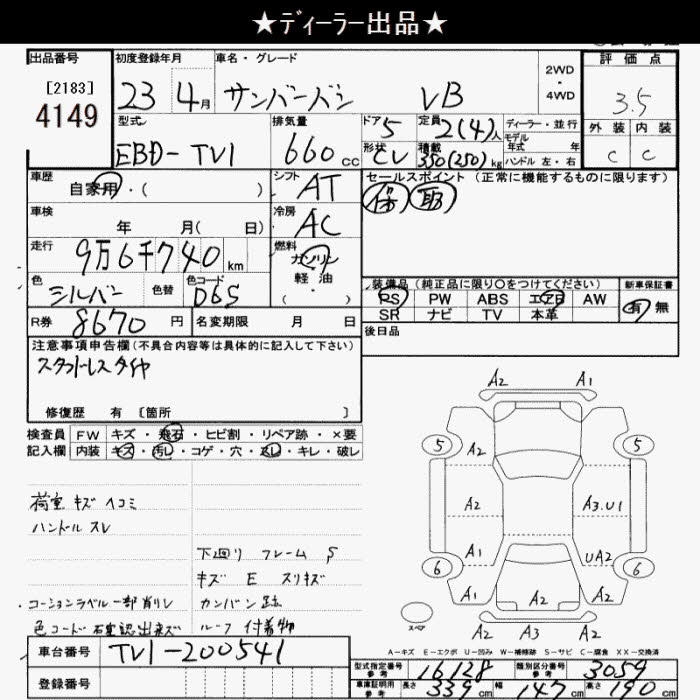 ★ディーラー出品★
出品番号 初度登録年月 車名・グレード 2WD・4WD 評価点
[2183]
4149 23年 4月 サンバーバン VB 3.5
型式 排気量 ドア 5 定員 2(4)人 ディーラー・並行 外装 内装
EBD-TV1 660cc 形状 CV 積載 350(250)kg モデル年式 年 C C
ハンドル 左・右
車歴 自家用・( ) シフト AT セールスポイント (正常に機能するものに限ります)
保 取
車検 年 月( 日) 冷房 AC
走行 9万6千740km 燃料 ガソリン・軽油・( )
色 シルバー 色替 色コード D6S 装備品 (純正品に限り○をつけてください) 新車保証書
PS PW ABS エアB AW 有 無
SR ナビ TV 本革
R券 8670円 名変期限 月 日 後日品
注意事項申告欄 (不具合内容等は具体的に記入して下さい)
スタットレスタイヤ
修復歴 有 〔箇所 〕
検査員記入欄 FW キズ・飛石・ヒビ割・リペア跡・×要
内装 キズ・汚レ・コゲ・穴・スレ・キレ・破レ
A2 A1
5 5
A2
A2 A3.U1
A1 UA2
6 6
A1 A2 A2
A2 A3 A2
スペア
荷室 キズ ヘコミ
ハンドル スレ
下廻り フレーム S
キズ E スリキズ
・コーションラベル一部削りレ カンバン跡
色コード 確認出来ズ ルーフ 付着物
A－キズ E－エクボ U－凹み W－補修跡 S－サビ C－腐食 XX－交換済
車台番号 TV1-200541
登録番号
型式指定番号 参考 16128 類別区分番号 参考 3059
車庫証明用 参考 長さ 339cm 幅 147cm 高さ 190cm